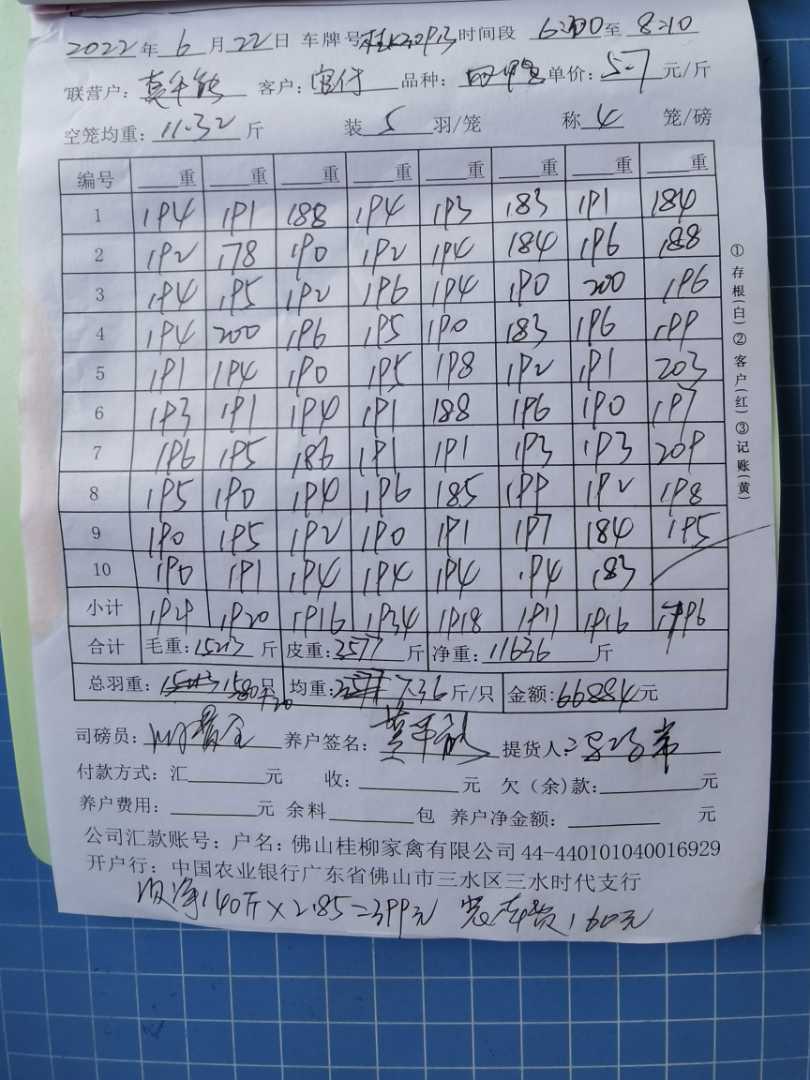 2022年 6月 22日 车牌号 时间段 6:00至 8:10
联营户: 客户: 品种: 单价: 5.7元/斤
空笼均重: 11.32 斤 装 5 羽/笼 称 4 笼/磅
编号 重 重 重 重 重 重 重 重
1 194 191 188 194 193 183 191 184
2 192 178 190 192 194 184 196 188
3 194 195 192 196 194 190 200 196
4 194 200 196 195 190 183 196 199
5 191 194 190 195 198 192 191 203
6 193 191 194 191 188 196 190 197
7 196 195 186 191 191 193 193 209
8 195 190 194 196 185 199 192 198
9 190 195 192 190 191 197 184 195
10 190 191 194 194 194 194 183
小计 1929 1920 1916 1934 1918 1911 1916
合计 毛重: 15213 斤 皮重: 3577 斤 净重: 11636 斤
总羽重: 1580只 均重: 7.36斤/只 金额: 66884元
司磅员: 养户签名: 提货人:
付款方式: 汇 元 收: 元 欠(余)款: 元
养户费用: 元 余料 包 养户净金额: 元
公司汇款账号: 户名: 佛山桂柳家禽有限公司 44-440101040016929
开户行: 中国农业银行广东省佛山市三水区三水时代支行
140斤×2.85=399元 160元
①存根(白)②客户(红)③记账(黄)